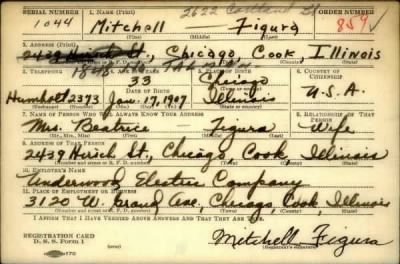 SERIAL NUMBER 1. NAME (Print) 2622 Cortland St ORDER NUMBER
1044 Mitchell Figura 859
(First) (Middle) (Last)
2. ADDRESS (Print)
2439 Hirsch St., Chicago, Cook, Illinois
3. TELEPHONE 4. AGE IN YEARS 5. PLACE OF BIRTH 6. COUNTRY OF CITIZENSHIP
33 Chicago
DATE OF BIRTH
Humbolt 2373 Jan. 17, 1907 Illinois U.S.A.
7. NAME OF PERSON WHO WILL ALWAYS KNOW YOUR ADDRESS 8. RELATIONSHIP OF THAT PERSON
Mrs. Beatrice Figura Wife
(Mr., Mrs., Miss) (First) (Middle) (Last)
9. ADDRESS OF THAT PERSON
2439 Hirsch St., Chicago, Cook, Illinois
10. EMPLOYER'S NAME
Underwood Electric Company
11. PLACE OF EMPLOYMENT OR BUSINESS
3120 W. Grand Ave., Chicago, Cook, Illinois
I AFFIRM THAT I HAVE VERIFIED ABOVE ANSWERS AND THAT THEY ARE TRUE.
REGISTRATION CARD
D. S. S. Form 1
Mitchell Figura
(Registrant's signature)